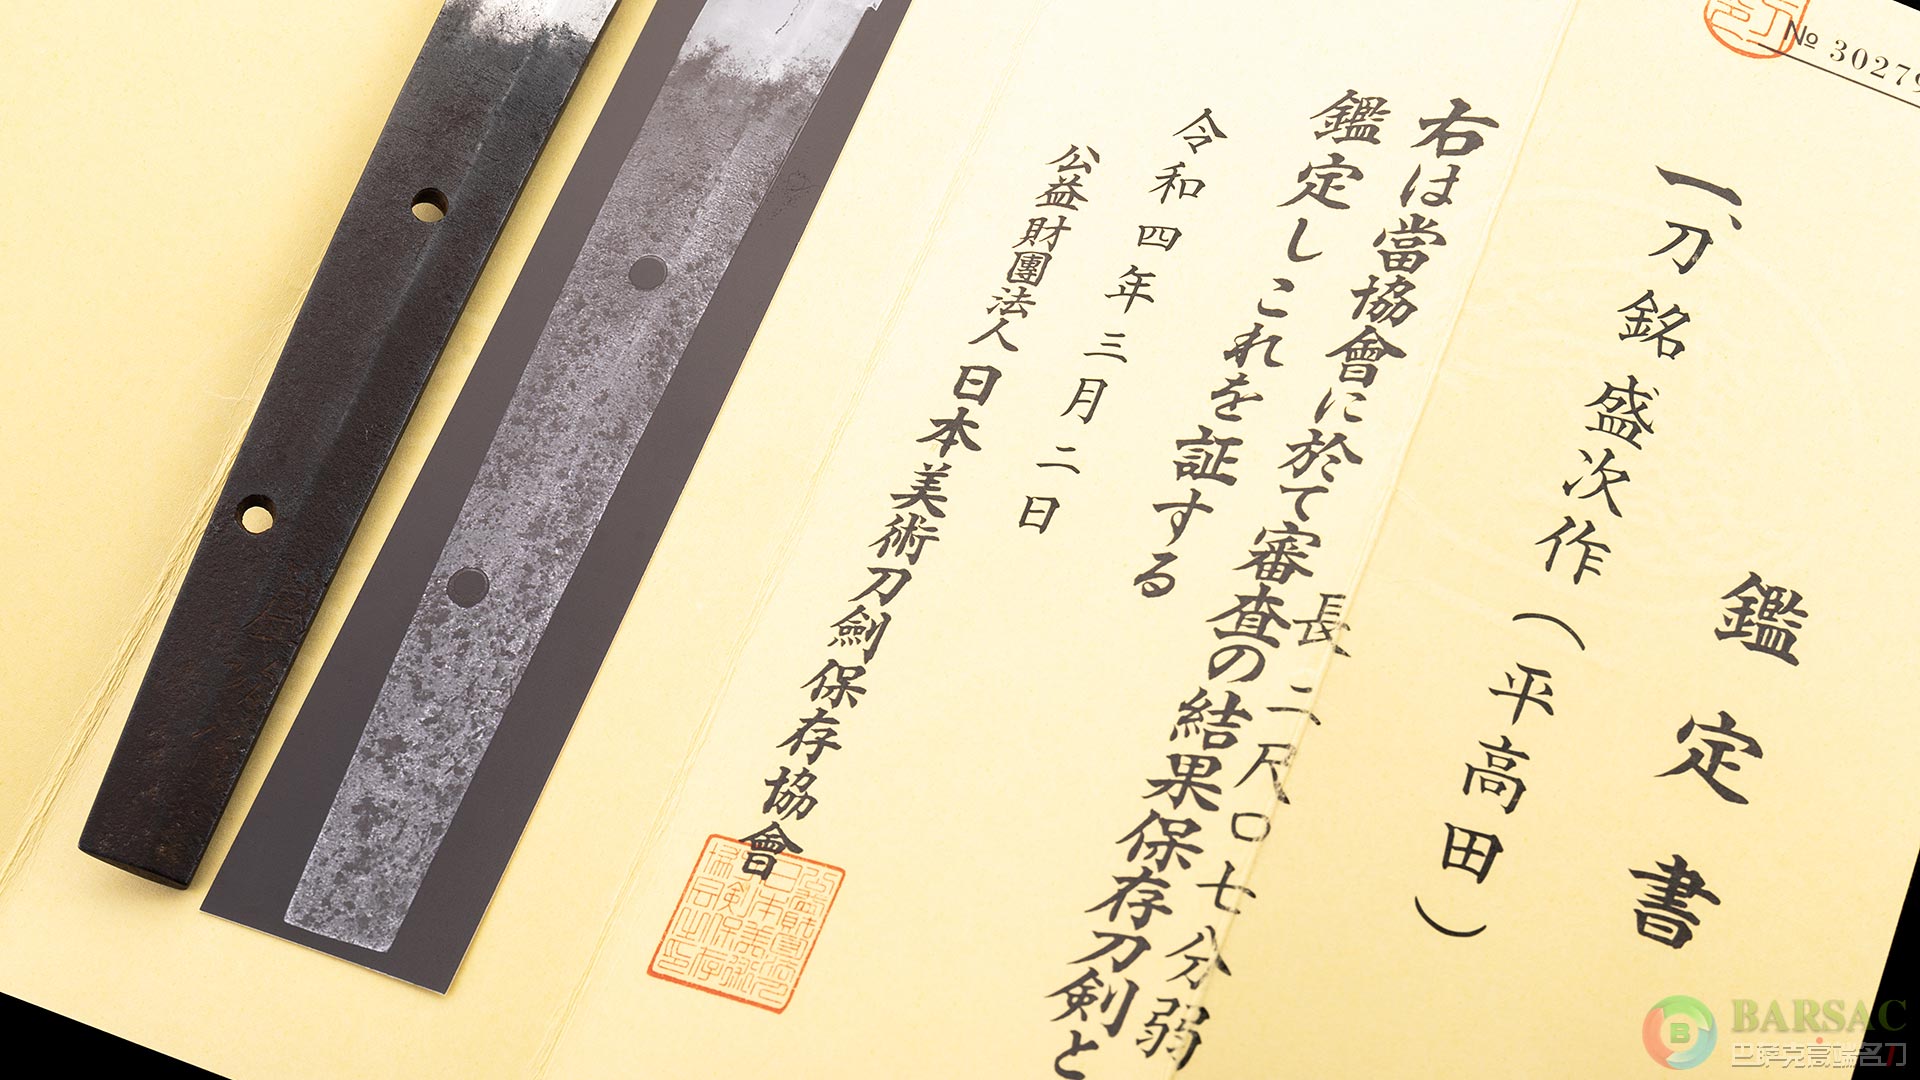 № 30279
鑑定書
一、刀 銘 盛次作（平高田）
長二尺〇七分弱
右は當協會に於て審査の結果保存刀剣と
鑑定しこれを証する
令和四年三月二日
公益財團法人日本美術刀劍保存協會
BARSAC
巴萨克高端名刀